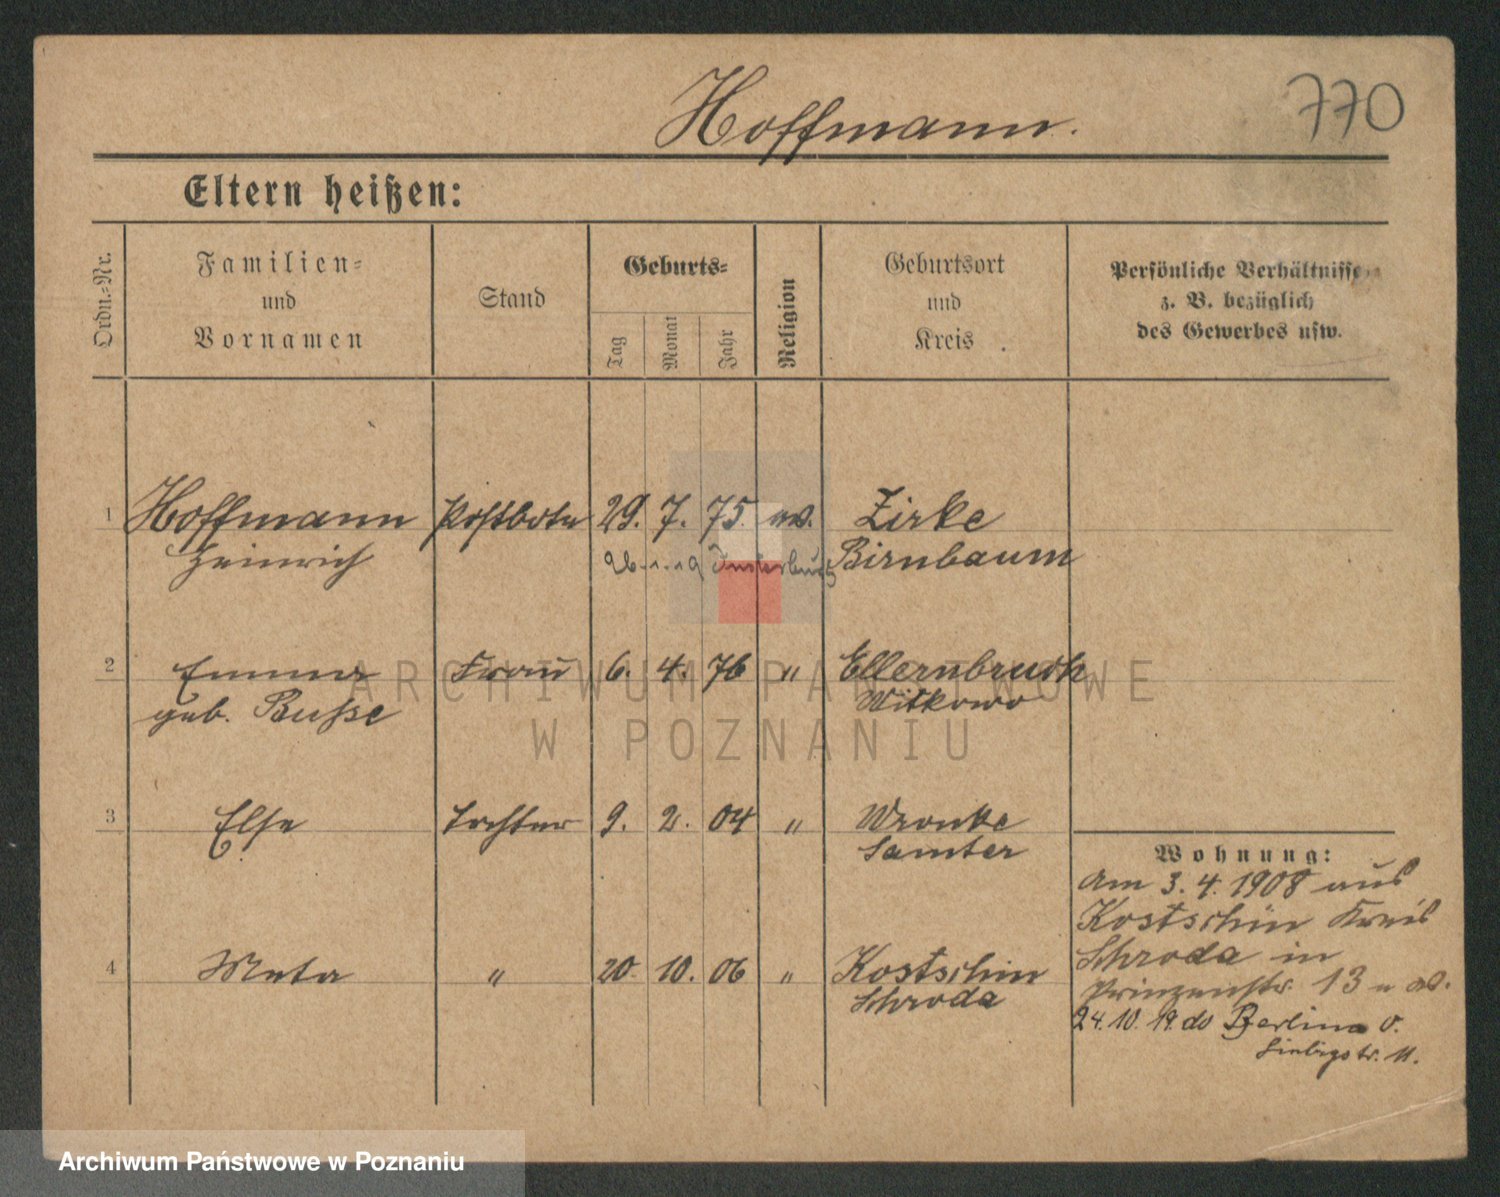 Hoffmann.
770
Eltern heißen:
Ordn.-Nr.
Familien-
und
Vornamen
Stand
Geburts-
Tag
Monat
Jahr
Religion
Geburtsort
und
Kreis
Persönliche Verhältnisse
z. B. bezüglich
des Gewerbes usw.
1 Hoffmann Postbote 29. 7. 75. ev. Zirke
Heinrich Birnbaum
26.1.19 Insterburg
2 Emma Frau 6. 4. 76 " Ellernbruch
geb. Busse Witkowo
3 Else Tochter 9. 2. 04 " Wronke
Samter
4 Meta " 20. 10. 06 " Kostschin
Schroda
Wohnung:
Am 3. 4. 1908 aus
Kostschin Kreis
Schroda in
Prinzenstr. 13
24. 10. 19. do Berlin O.
Liebigstr. 11.
ARCHIWUM PAŃSTWOWE
W POZNANIU
Archiwum Państwowe w Poznaniu